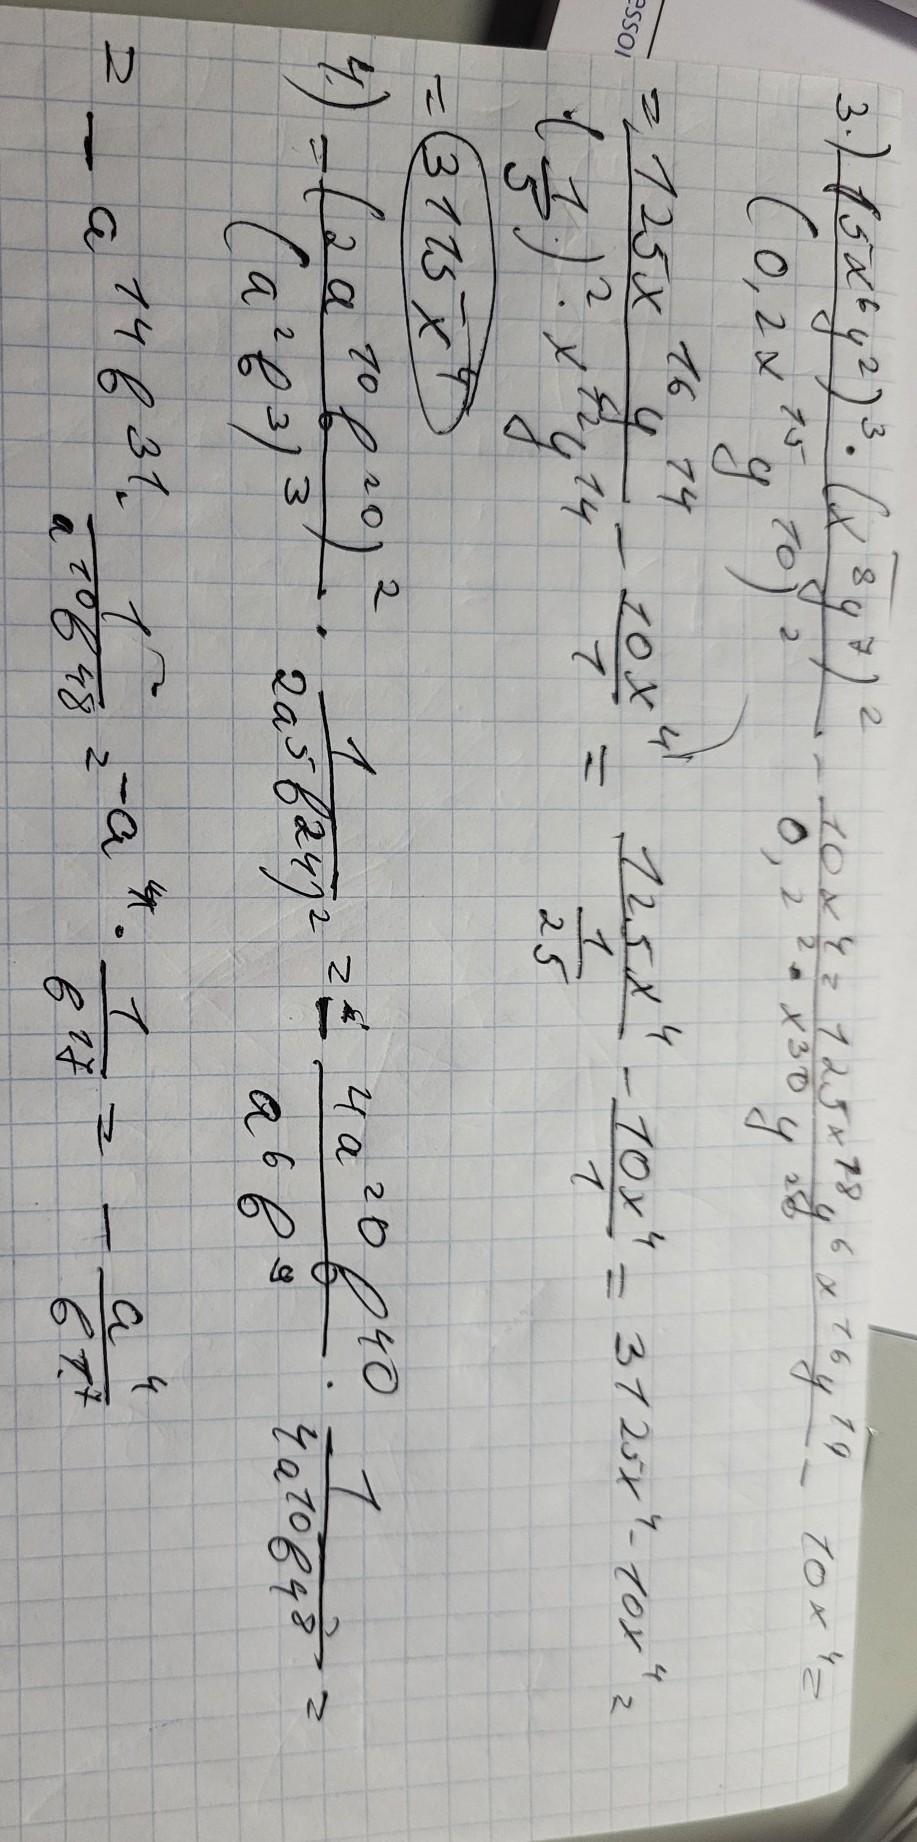 ESSOI
3.) (5x⁶y²)³ · (x⁸y⁷)² / (0,2x¹⁵y¹⁰)² - 10x⁴ = 125x¹⁸y⁶x¹⁶y¹⁴ / 0,2² · x³⁰y²⁰ - 10x⁴ =
= 125x¹⁶y¹⁴ / (1/5)² · x¹²y¹⁴ - 10x⁴/1 = 125x⁴ / 1/25 - 10x⁴/1 = 3125x⁴ - 10x⁴ =
= 3115x⁴
4.) = (2a¹⁰b²⁰)² / (a²b³)³ · 1 / 2a⁵b²⁴)² = - 4a²⁰b⁴⁰ / a⁶b⁹ · 1 / 4a¹⁰b⁴⁸ =
= - a¹⁴b³¹ · 1 / a¹⁰b⁴⁸ = -a⁴ · 1 / b¹⁷ = - a⁴ / b¹⁷